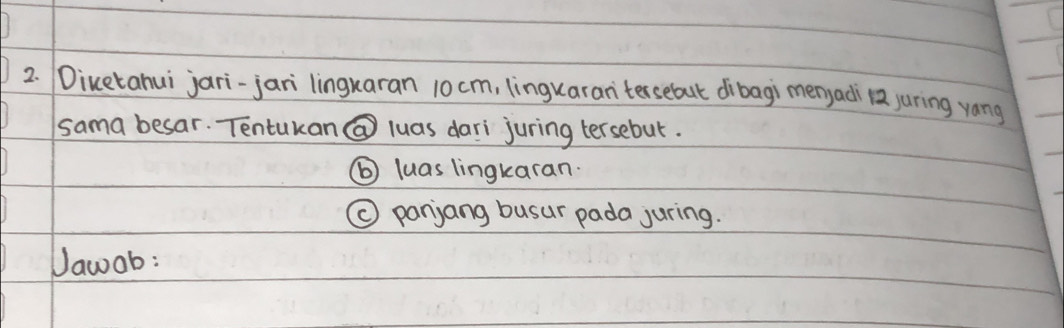 2. Diketahui jari-jari lingkaran 10 cm, lingkaran tersebut dibagi menjadi 12 juring yang
sama besar. Tentukan ⓐ luas dari juring tersebut.
ⓑ luas lingkaran.
ⓒ panjang busur pada juring.
Jawab: